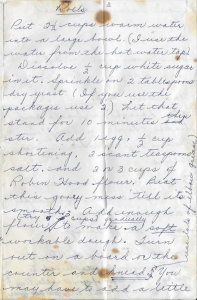 Rolls 2
Put 2½ cups warm water
into a large bowl. (I use the
water from the hot water tap)
Dissolve ½ cup white sugar
in it. Sprinkle on 2 tablespoons
dry yeast (If you use the
packages use 2) Let that
stand for 10 minutes
stir. Add 1 egg, ⅓ cup
shortening, 2 scant teaspoons
salt, and 2 or 3 cups of
Robin Hood flour. Beat
this gooey mass till its
smooth. Add enough
flour to make a soft
workable dough. Turn
out on a board or the
counter and knead. You
may have to add a little